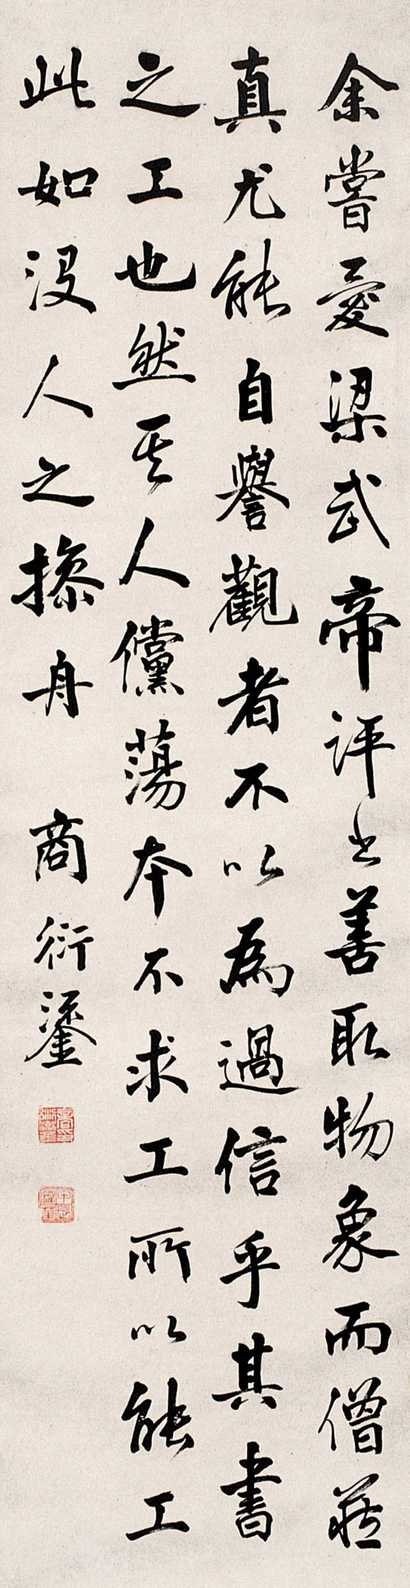 余嘗愛梁武帝評書善取物象而僧藏
真尤能自譽觀者不以為過信乎其書
之工也然其人儻蕩本不求工所以能工
此如没人之操舟 商衍鎏